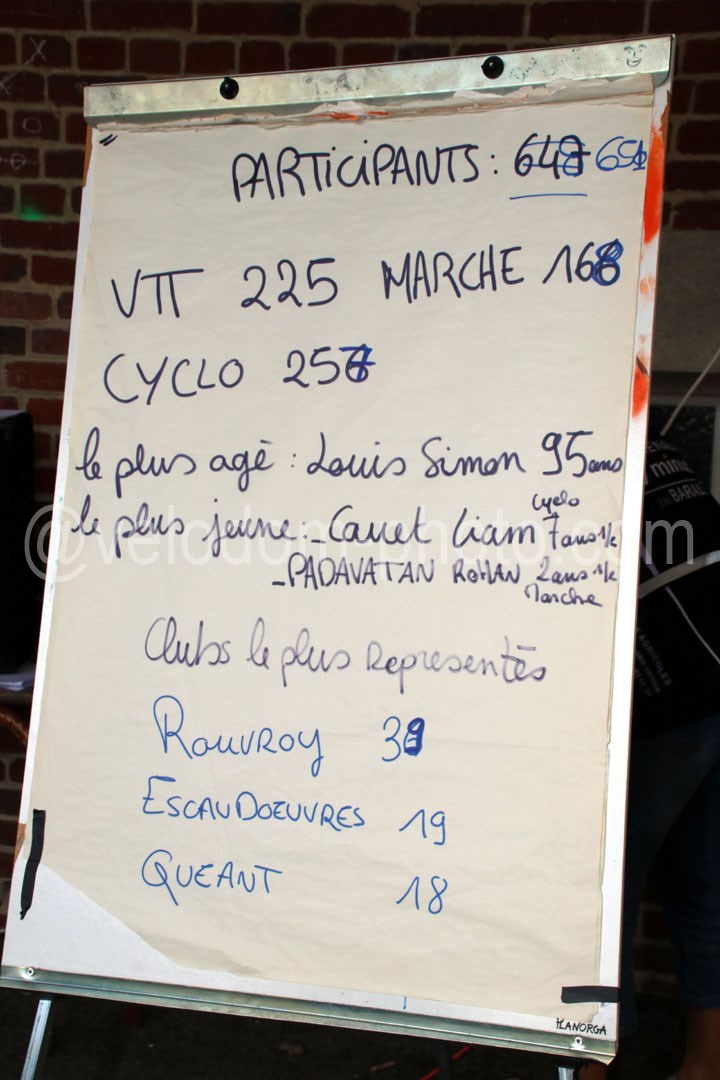 PARTICIPANTS : 648 651
VTT 225 MARCHE 168
CYCLO 257
le plus agè : Louis Simon 95 ans
Cyclo
le plus jeune : - Cauet Liam 7 ans 1/2
@velodom-photo.com
- PADAVATAN ROHAN 2 ans 1/2
Marche
Clubs le plus Representès
ROUVROY
ESCAUDOEUVRES 19
QUEANT 18
PLANORGA